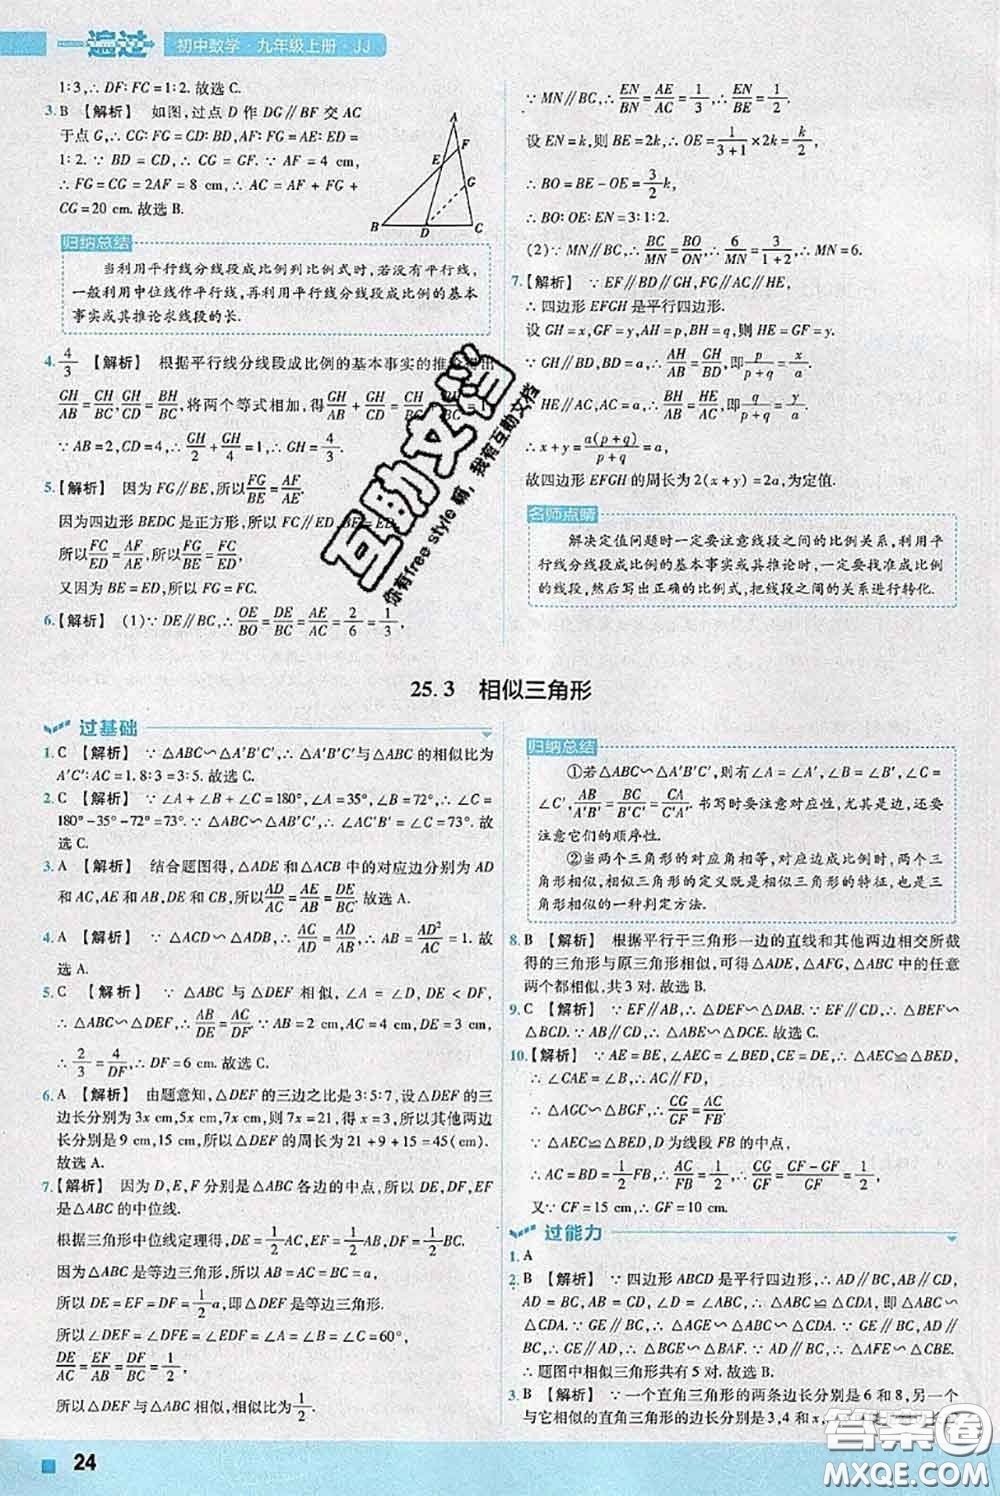 一遍过 初中数学·九年级上册·JJ
1:3,∴DF:FC=1:2.故选C.
3. B 【解析】 如图,过点D作DG∥BF交AC
于点G,∴CG:FG=CD:BD,AF:FG=AE:ED=
1:2.∵BD=CD,∴CG=GF.∵AF=4 cm,
∴FG=CG=2AF=8 cm,∴AC=AF+FG+
CG=20 cm.故选B.
A
E
F
G
B D C
归纳总结
当利用平行线分线段成比例列比例式时,若没有平行线,
一般利用中位线作平行线,再利用平行线分线段成比例的基本
事实或其推论求线段的长.
4. 4/3 【解析】 根据平行线分线段成比例的基本事实的推
GH/AB=CH/CB,GH/CD=BH/BC,将两个等式相加,得GH/AB+GH/CD=CH/BC+
∵AB=2,CD=4,∴GH/2+GH/4=1,∴GH=4/3.
5.【解析】 因为FG∥BE,所以FG/BE=AF/AE.
因为四边形BEDC是正方形,所以FC∥ED,BE=
所以FC/ED=AF/AE,所以FC/ED=FG/BE.
又因为BE=ED,所以FC=FG.
6.【解析】 (1)∵DE∥BC,∴OE/BO=DE/BC=AE/AC=2/6=1/3,
∵MN∥BC,∴EN/BN=AE/AC=1/3,∴EN/BE=1/2.
设EN=k,则BE=2k,∴OE=1/(3+1)×2k=k/2,
∴BO=BE-OE=3/2k,
∴BO:OE:EN=3:1:2.
(2)∵MN∥BC,∴BC/MN=BO/ON,∴6/MN=3/(1+2),∴MN=6.
7.【解析】 ∵EF∥BD∥GH,FG∥AC∥HE,
∴四边形EFGH是平行四边形.
设GH=x,GF=y,AH=p,HB=q,则HE=GF=y.
∵GH∥BD,BD=a,∴AH/AB=GH/BD,即p/(p+q)=x/a.
∵HE∥AC,AC=a,∴HB/AB=HE/AC,即q/(p+q)=y/a.
∴x+y=a(p+q)/(p+q)=a,
故四边形EFGH的周长为2(x+y)=2a,为定值.
名师点睛
解决定值问题时一定要注意线段之间的比例关系,利用平
行线分线段成比例的基本事实或其推论时,一定要找准成比例的线
段,然后写出正确的比例式,把线段之间的关系进行转化.
互助文档
你有free style 嘛,我有互助文档
25.3 相似三角形
过基础
1. C 【解析】 ∵△ABC∽△A'B'C',∴△A'B'C'与△ABC的相似比为
A'C':AC=1.8:3=3:5.故选C.
2. C 【解析】 ∵∠A+∠B+∠C=180°,∠A=35°,∠B=72°,∴∠C=
180°-35°-72°=73°.∵△ABC∽△AB'C',∴∠AC'B'=∠C=73°.故
选C.
3. A 【解析】 结合题图得,△ADE和△ACB中的对应边分别为AD
和AC,AE和AB,DE和BC,所以AD/AC=AE/AB=DE/BC.故选A.
4. A 【解析】 ∵△ACD∽△ADB,∴AC/AD=AD/AB,∴AB=AD²/AC=1.故
选A.
5. C 【解析】 ∵△ABC与△DEF相似,∠A=∠D,DE<DF,
∴△ABC∽△DEF,∴AB/DE=AC/DF.∵AB=2,AC=4,DE=3,
∴2/3=4/DF,∴DF=6.故选C.
6. A 【解析】 由题意知,△DEF的三边之比是3:5:7,设△DEF的三
边长分别为3x cm,5x cm,7x cm,则7x=21,得x=3,所以其他两边
长分别是9 cm,15 cm,所以△DEF的周长为21+9+15=45(cm).
故选A.
7.【解析】 因为D,E,F分别是△ABC各边的中点,所以DE,DF,EF
是△ABC的中位线.
根据三角形中位线定理得,DE=1/2AC,EF=1/2AB,DF=1/2BC.
因为△ABC是等边三角形,
所以DE=EF=DF=1/2a,即△DEF是等边三角形.
所以∠DEF=∠DFE=∠EDF=∠A=∠B=∠C=60°,
DE/AC=EF/AB=DF/BC=1/2,
所以△DEF与△ABC相似,相似比为1/2.
归纳总结
①若△ABC∽△A'B'C',则有∠A=∠A',∠B=∠B',∠C
=∠C',AB/A'B'=BC/B'C'=CA/C'A'.书写时要注意对应性,边还要
注意它们的顺序性.
②当两个三角形的对应角相等,对应边成比例时,两个三
角形相似,相似三角形的定义既是相似三角形的特征,也是三
角形相似的一种判定方法.
8. B 【解析】 根据平行于三角形一边的直线和其他两边相交所截
得的三角形与原三角形相似,可得△ADE,△AFG,△ABC中的任意
两个都相似,共3对.故选B.
9. C 【解析】 ∵EF∥AB,∴△DEF∽△DAB.∵EF∥CD,∴△BEF∽
△BCD.∵AB∥CD,∴△ABE∽△DCE.故选C.
10.【解析】 ∵AE=BE,∠AEC=∠BED,CE=DE,∴△AEC≌△BED,
∴∠CAE=∠B,∴AC∥FD,
∴△AGC∽△BGF,∴CG/GF=AC/FB.
∵△AEC≌△BED,D为线段FB的中点,
∴AC=BD=1/2FB,∴AC/FB=1/2,∴CG/GF=1/2,∴GF/CF=2/3.
又∵CF=15 cm,∴GF=10 cm.
过能力
1. A
2. B 【解析】 ∵四边形ABCD是平行四边形,∴AD∥BC,AB∥CD,
AD=BC,AB=CD,∠D=∠ABC,∴△ABC≌△CDA,即△ABC∽
△CDA.∵GE∥BC,∴△AGE∽△ABC∽△CDA.∵GE∥BC,AD∥BC,
∴GE∥AD,∴△BGE∽△BAF.∵AD∥BC,∴△AFE∽△CBE.
∴题图中相似三角形共有5对.故选B.
3. B 【解析】 ∵一个直角三角形的两条边长分别是6和8,另一个
与它相似的直角三角形的边长分别是3,4和x,
24
答案圈
MXQE.COM